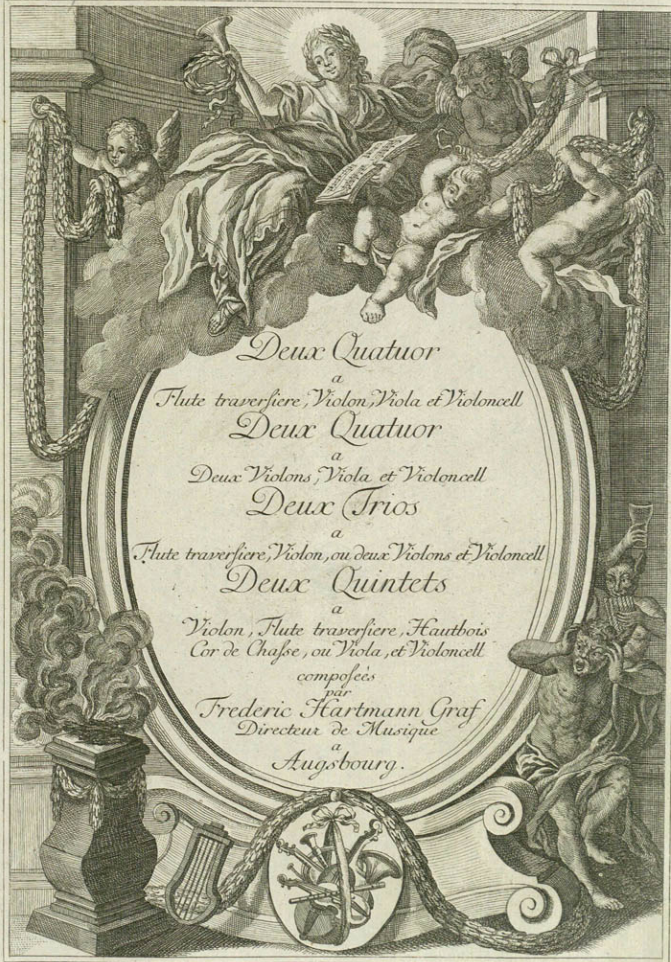 Deux Quatuor
a
Flute traverſiere, Violon, Viola et Violoncell
Deux Quatuor
a
Deux Violons, Viola et Violoncell
Deux Trios
a
Flute traverſiere, Violon, ou deux Violons et Violoncell
Deux Quintets
a
Violon, Flute traverſiere, Hautbois
Cor de Chaſse, ou Viola, et Violoncell
compoſeés
par
Frederic Hartmann Graf
Directeur de Musique
a
Augsbourg.